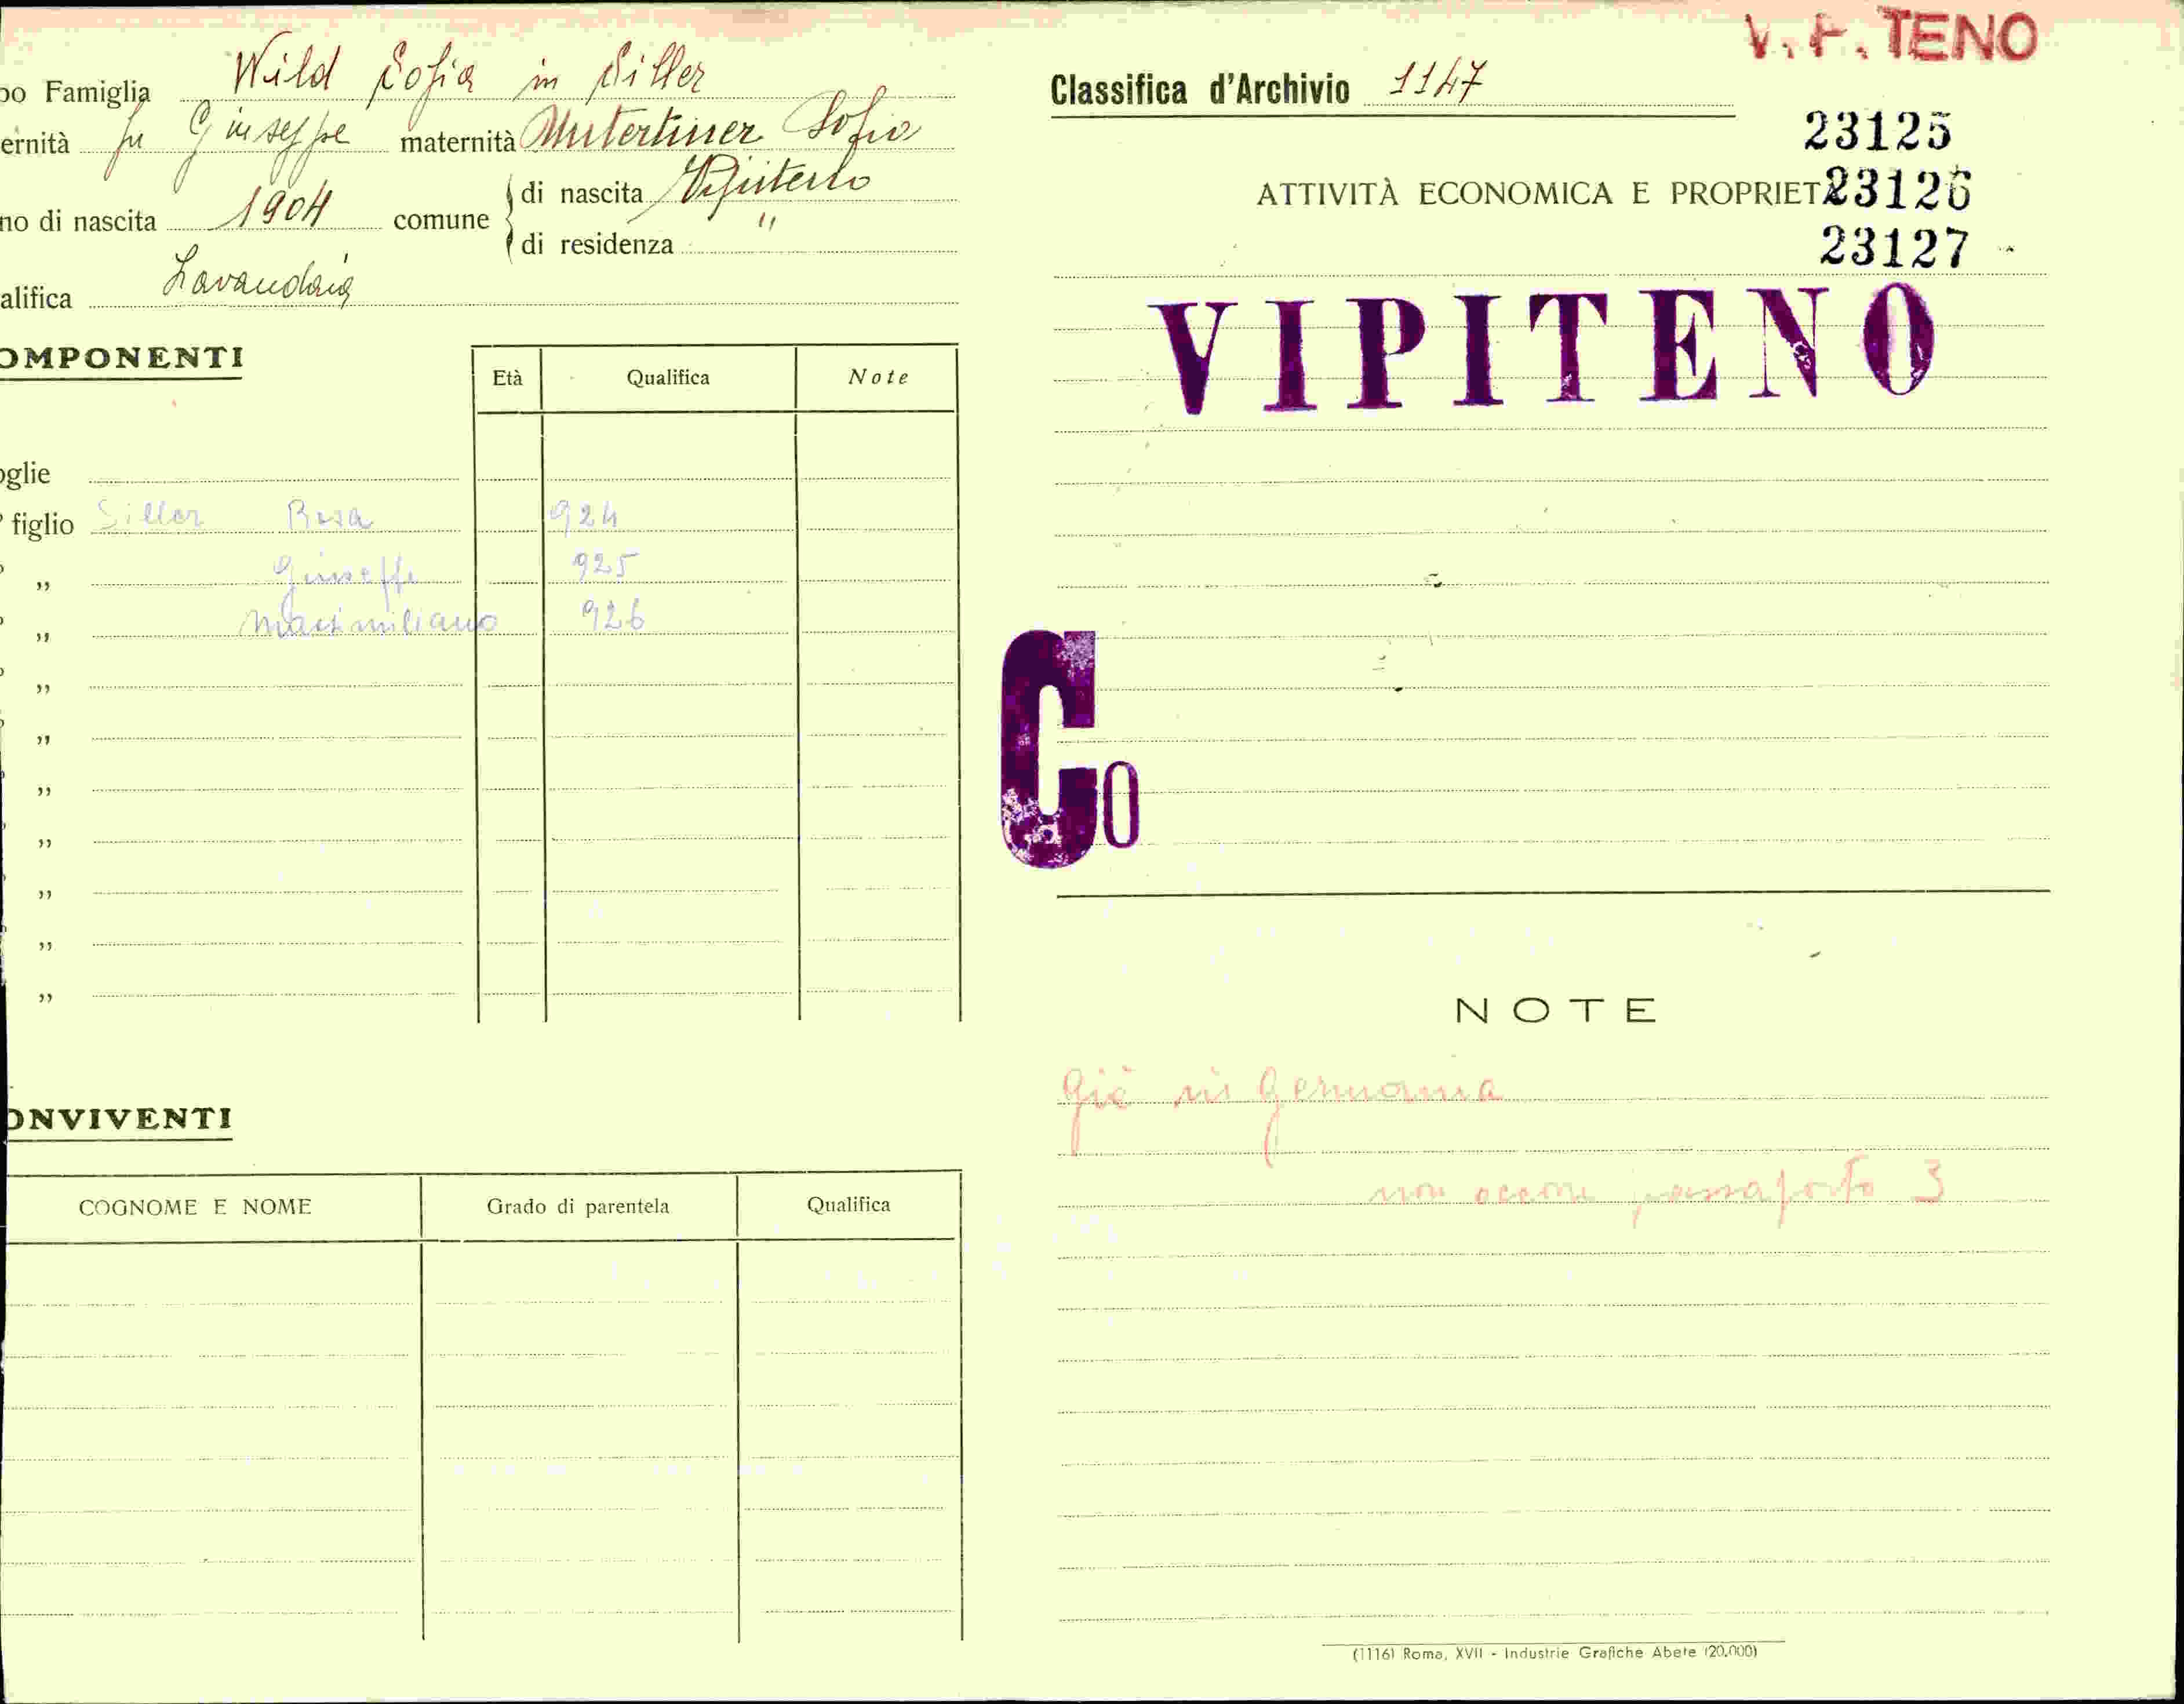 po Famiglia Wild Sofia in Siller
ernità fu Giuseppe maternità Unterthiner Sofia
no di nascita 1904 comune di nascita Vipiteno
di residenza "
alifica Lavandaia
OMPONENTI
Età Qualifica Note
oglie
° figlio Siller Rosa 924
„ Giuseppe 925
„ Massimiliano 926
„
„
„
„
„
„
„
ONVIVENTI
COGNOME E NOME Grado di parentela Qualifica
V. P. TENO
Classifica d'Archivio 1147
23125
ATTIVITÀ ECONOMICA E PROPRIET 23126
23127
VIPITENO
Co
NOTE
Già in Germania
non occorre passaporto 3
(1116) Roma, XVII - Industrie Grafiche Abete (20.000)